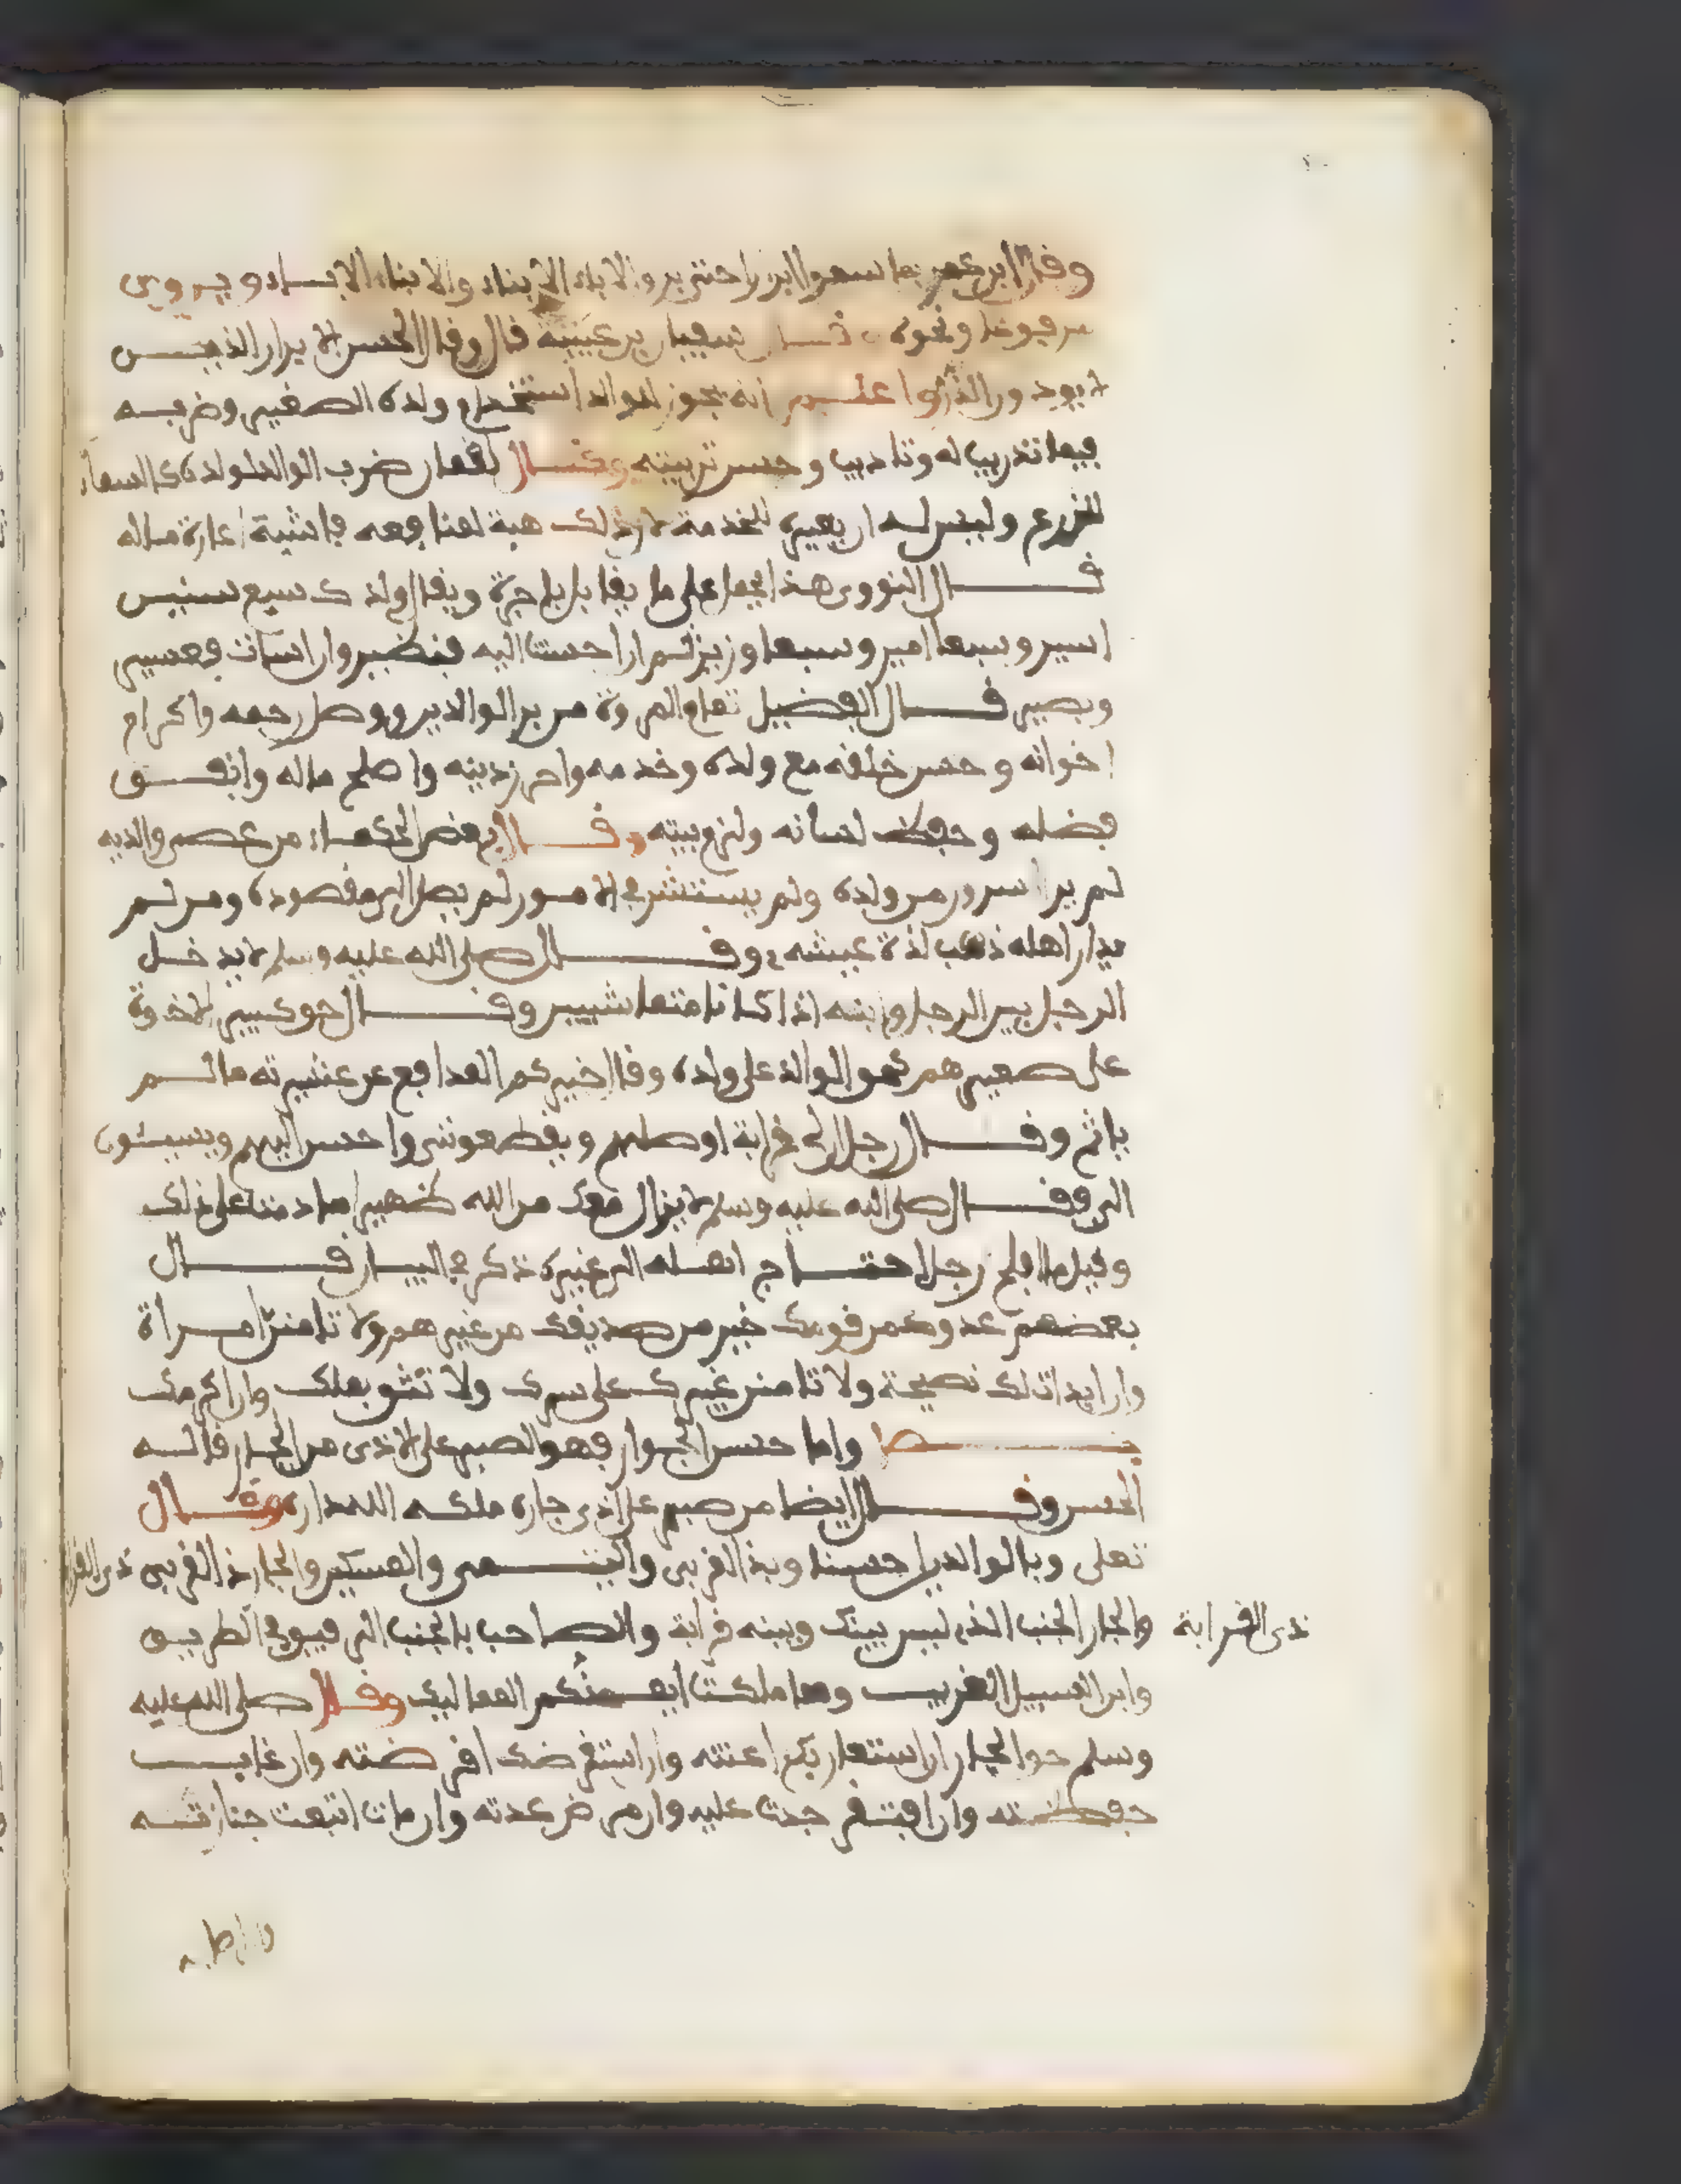 وقال ابن عمر ما سموا ابرارا حتى بر والاباء الابناء والابناء الاباء ويروى
مرفوعا ونحوه سفيان بن عيينة قال وقال الحسن الابرار الذين
لا يوذون الذر واعلم انه يجوز للوالد استخدام ولده الصغير وضربه
فيما تدريب له وتاديب وحسن تربيته وقال لقمان ضرب الوالد لولده كالسماد
للزرع وليس له ان يعيره لخدمة لان ذلك هبة لمنافعه فاشبه اعارة ماله
قال النووى هذا محمول على ما يقابل باجرة ويقال ولدك سبع سنين
اسير وسبعا امير وسبعا وزير ثم ان احسنت اليه فنضير وان اسات فعسير
وبصير قال الفضيل تمام المروة من بر الوالدين ووصل رحمه واكرام
اخوانه وحسن خلقه مع ولده وخدمه واحرز دينه واصلح ماله وانفق
فضله وحفظ لسانه ولزم بيته وقال بعض الحكماء من عصى والديه
لم ير السرور من ولده ولم يستشر في الامور لم يصل الى مقصوده ومن لم
يدار اهله ذهب لذة عيشه وقال صلى الله عليه وسلم لا يدخل
الرجل بين الرجل وابنه اذا كانا متماشيين وقال حق كبير الاخوة
على صغيرهم كحق الوالد على ولده وقال خيركم المدافع عن عشيرته ما لم
ياثم وقال رجل ان لى قرابة اوصلهم ويقطعونني واحسن اليهم ويسيئون
الى فقال صلى الله عليه وسلم لا يزال معك من الله ظهير ما دمت على ذلك
وقيل ما افلح رجل احتاج اهله الى غيره ذكره في البيان قال
بعضهم عدوك من قومك خير من صديقك من غيرهم ولا تامنن امراة
وان ابدات لك نصيحة ولا تامنن غيرك على سرك ولا تثق بملك وان اكرمك
فصل واما حسن الجوار فهو الصبر على الاذى من الجار قاله
الحسن وقال ايضا من صبر على اذى جاره ملكه الله داره وقال
تعلى وبالوالدين احسنا وبذى القربى واليتمى والمسكين والجار ذى القربى
ذى القرابة والجار الجنب الذى ليس بينك وبينه قرابة والصاحب بالجنب الرفيق في الطريق
وابن السبيل الغريب وما ملكت ايمنكم المماليك وقال صلى الله عليه
وسلم حق الجار ان استعان بك اعنته وان استقرضك اقرضته وان غاب
حفظته وان افتقر جدت عليه وان مرض عدته وان مات اتبعت جنازته